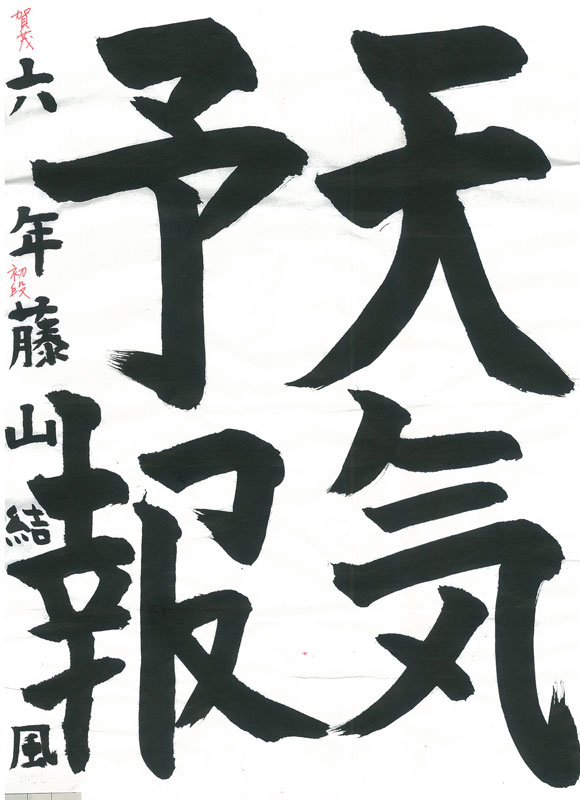 天気
予報
賀茂
六年藤山結風
初段